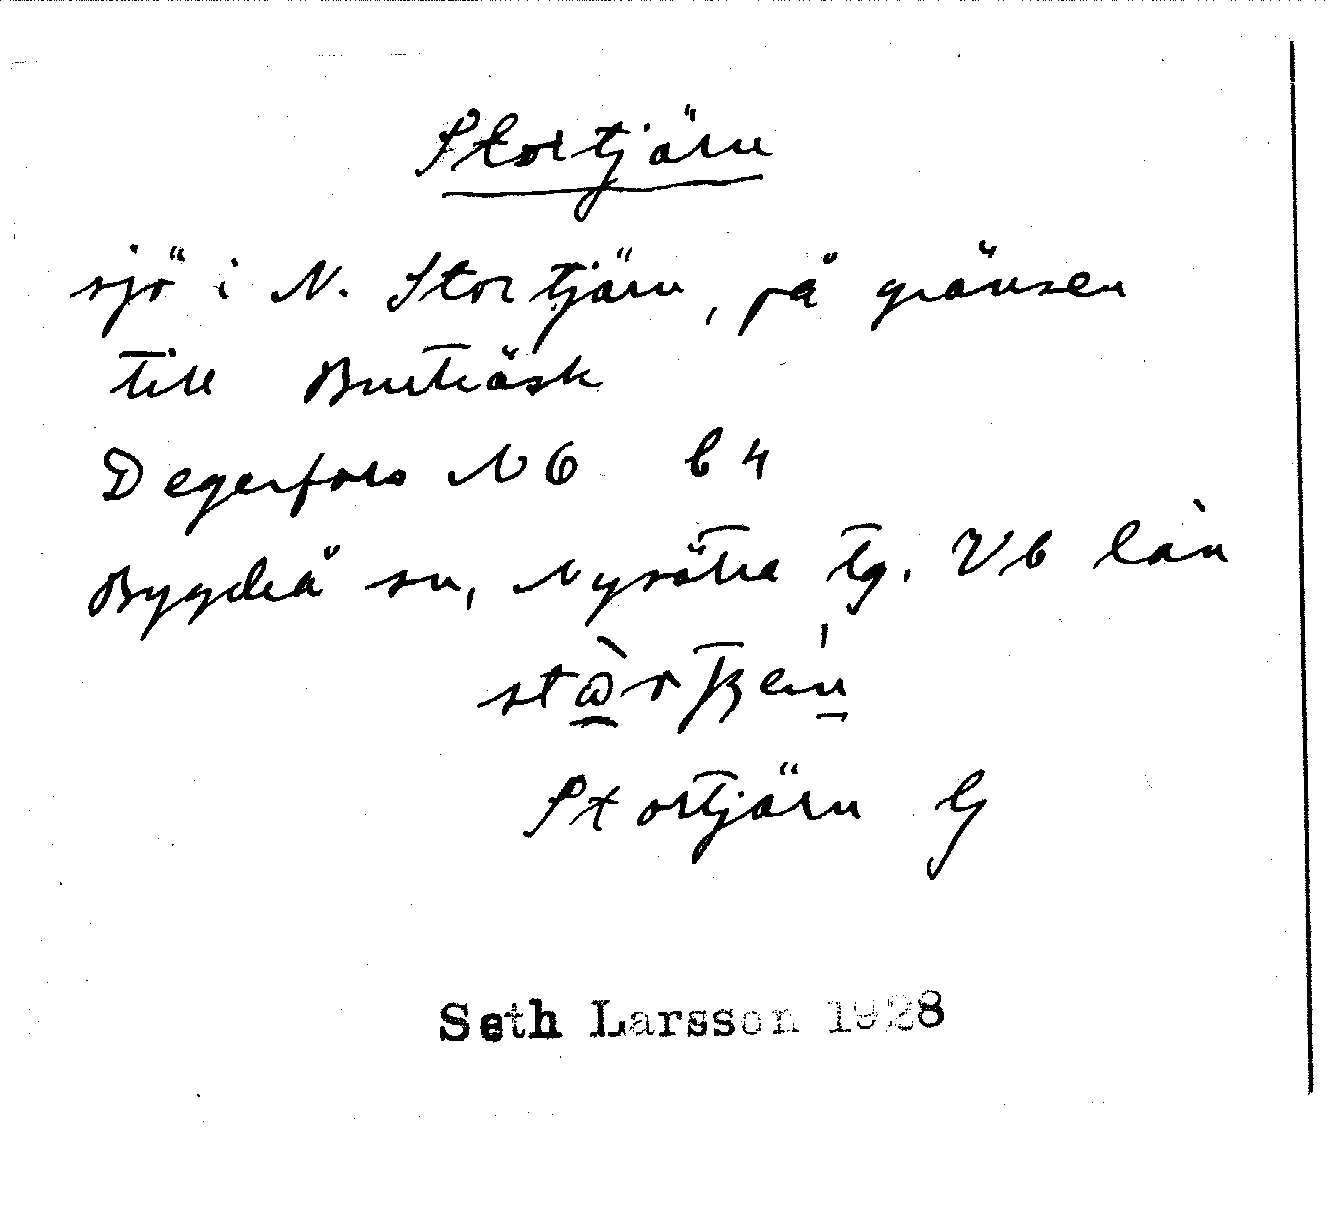 Stortjärn
sjö i N. Stortjärn, på gränsen
till Burträsk
Degerfors NO b 4
Bygdeå sn, Nysätra tg. Vb län
Stortjärn G
Seth Larsson 1928